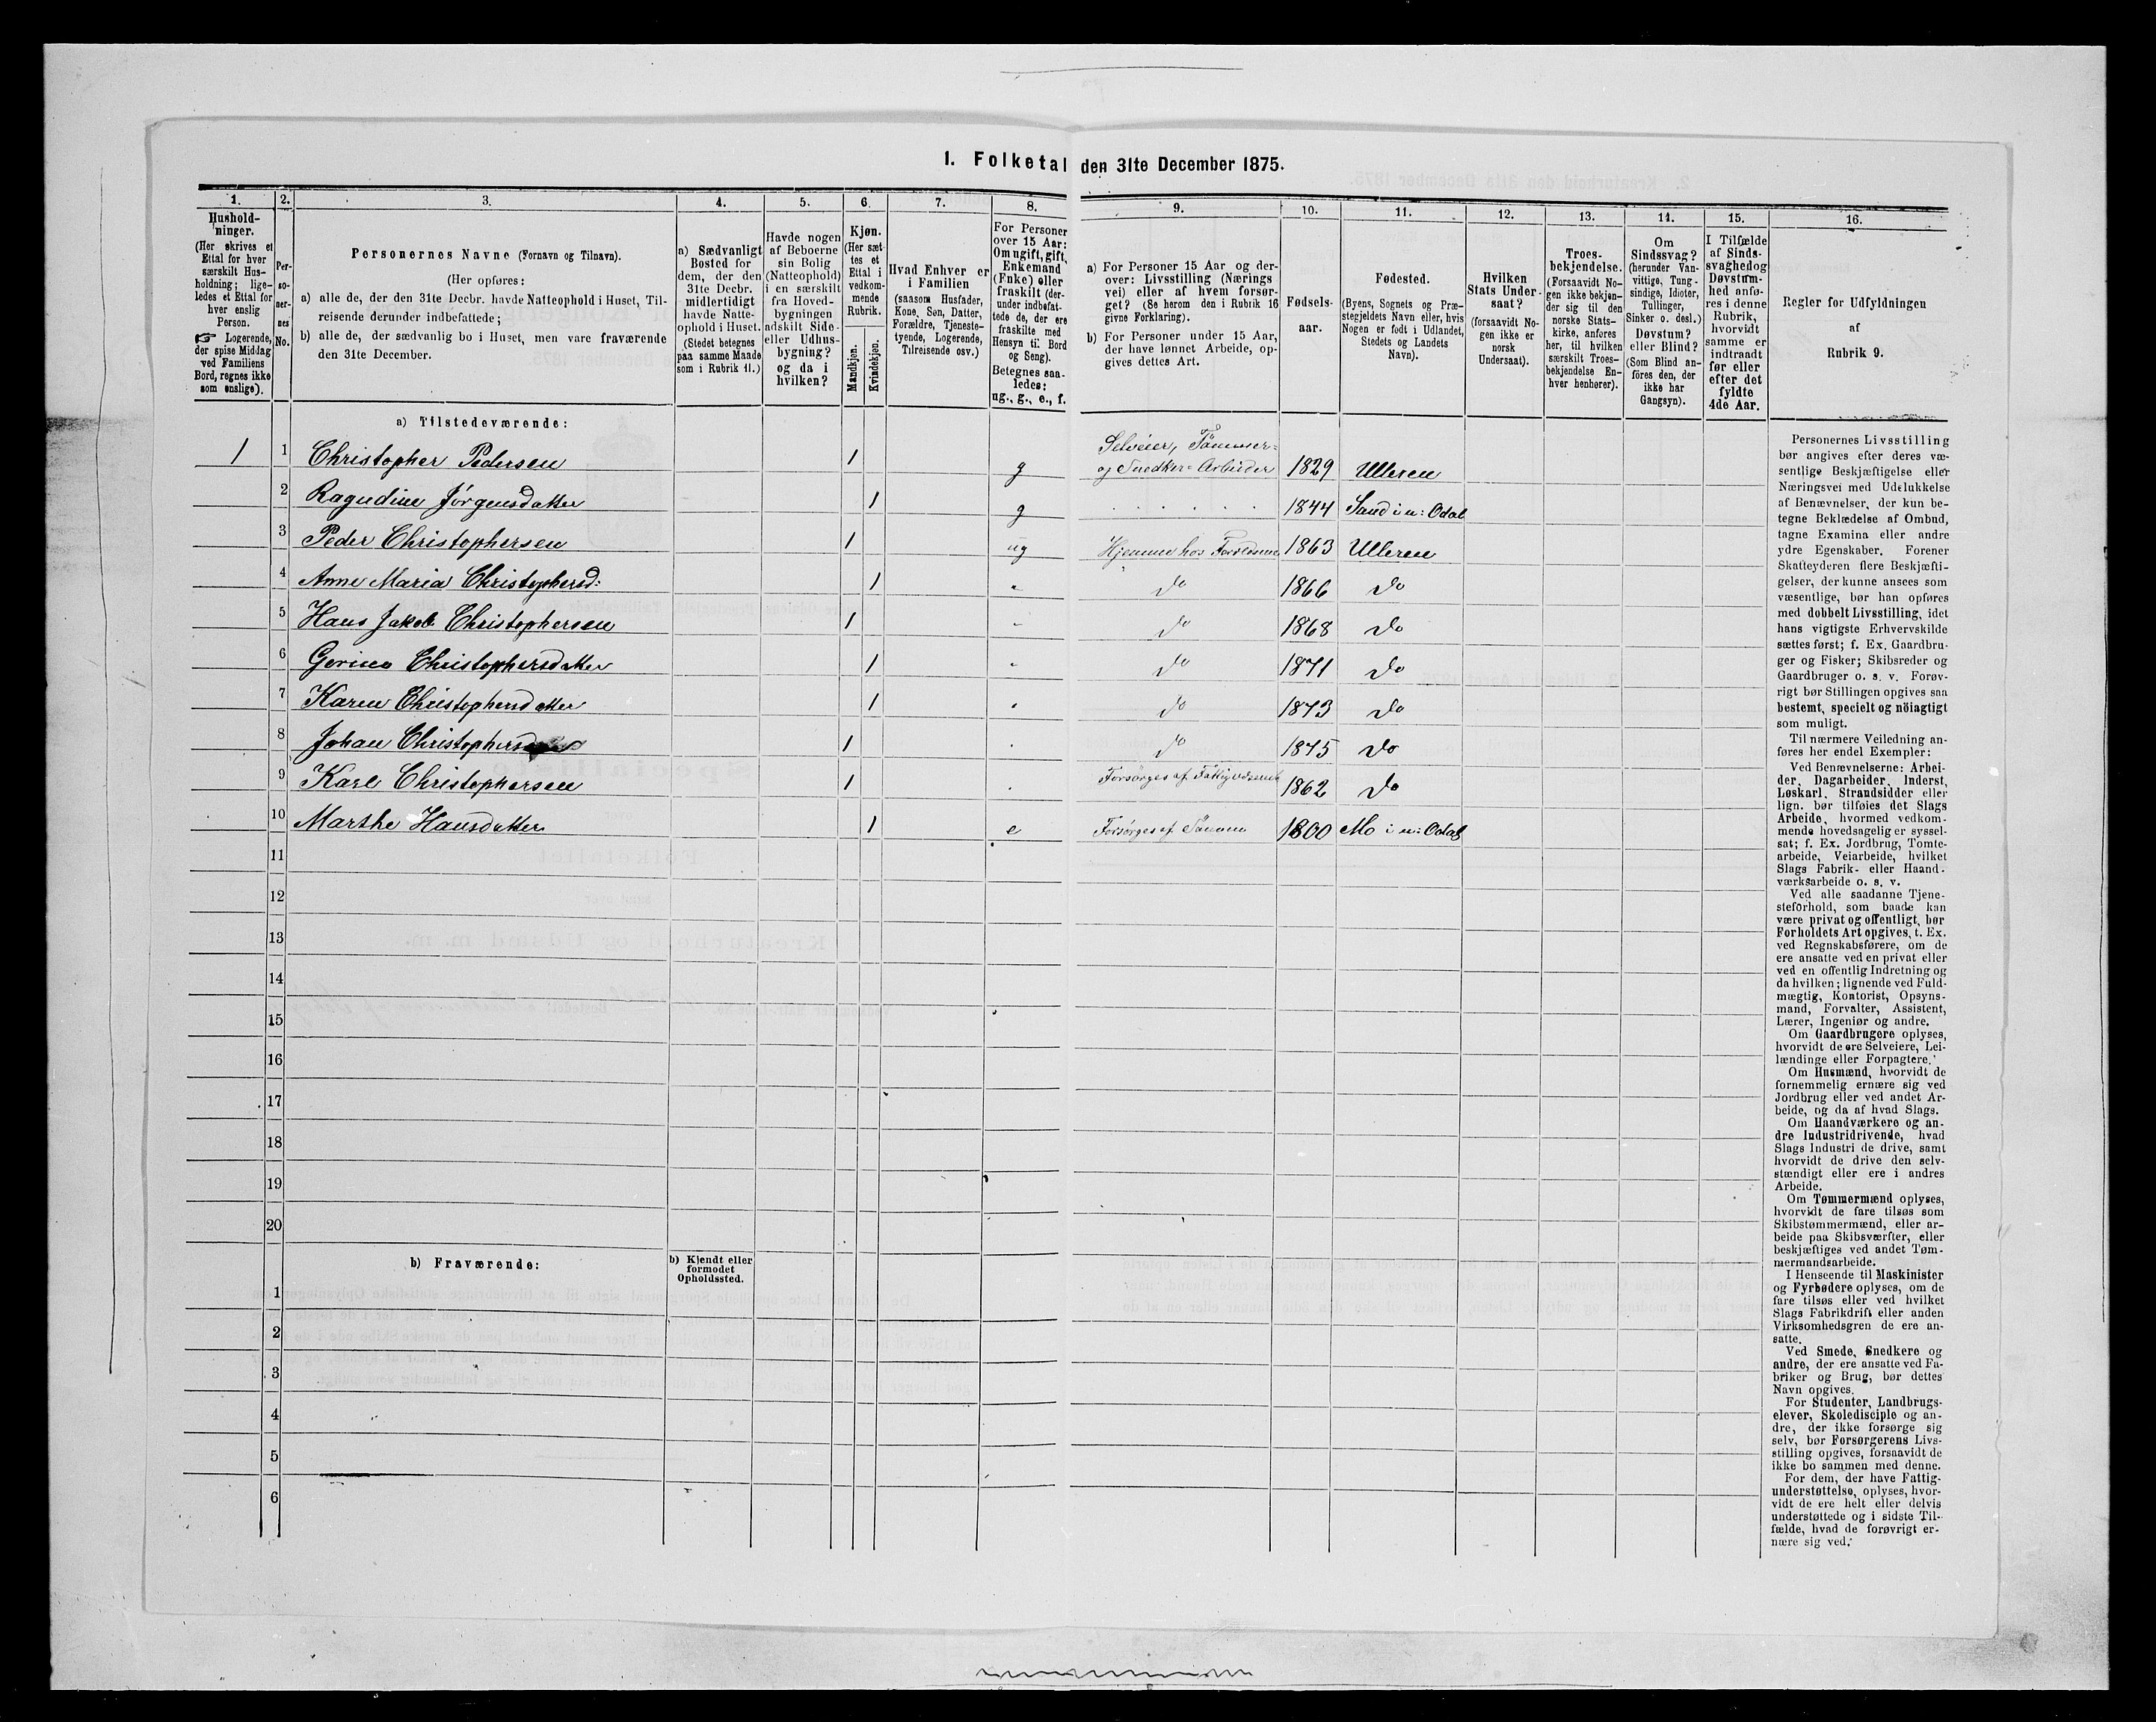 1. Folketal den 31te December 1875.
1.
Hushold-
ninger.
(Her skrives et
Ettal for hver
særskilt Hus-
holdning; lige-
ledes et Ettal for
hver enslig
Person.
☞ Logerende,
der spise Middag
ved Familiens
Bord, regnes ikke
som enslige).
2.
Per-
so-
ner-
nes
No.
3.
Personernes Navne (Fornavn og Tilnavn).
(Her opføres:
a) alle de, der den 31te Decbr. havde Natteophold i Huset, Til-
reisende derunder indbefattede;
b) alle de, der sædvanlig bo i Huset, men vare fraværende
den 31te December.
4.
a) Sædvanligt
Bosted for
dem, der den
31te Decbr.
midlertidigt
havde Natte-
ophold i Huset.
(Stedet betegnes
paa samme Maade
som i Rubrik 11.)
5.
Havde nogen
af Beboerne
sin Bolig
(Natteophold)
i en særskilt
fra Hoved-
bygningen
adskilt Side-
eller Udhus-
bygning?
og da i
hvilken?
6.
Kjøn.
(Her sæt-
tes et
Ettal i
vedkom-
mende
Rubrik.
Mandkjøn.
Kvindekjøn.
7.
Hvad Enhver er
i Familien
(saasom Husfader,
Kone, Søn, Datter,
Forældre, Tjeneste-
tyende, Logerende,
Tilreisende osv.)
8.
For Personer
over 15 Aar:
Om ugift, gift,
Enkemand
(Enke) eller
fraskilt (der-
under indbefat-
tede de, der ere
fraskilte med
Hensyn til Bord
og Seng).
Betegnes saa-
ledes:
ug., g., e., f.
9.
a) For Personer 15 Aar og der-
over: Livsstilling (Nærings
vei) eller af hvem forsør-
get? (Se herom den i Rubrik 16
givne Forklaring).
b) For Personer under 15 Aar,
der have lønnet Arbeide, op-
gives dettes Art.
10.
Fødsels-
aar.
11.
Fødested.
(Byens, Sognets og Præ-
stegjeldets Navn eller, hvis
Nogen er født i Udlandet,
Stedets og Landets
Navn).
12.
Hvilken
Stats Under-
saat?
(forsaavidt No-
gen ikke er
norsk
Undersaat).
13.
Troes-
bekjendelse.
(Forsaavidt No-
gen ikke bekjen-
der sig til den
norske Stats-
kirke, anføres
her, til hvilken
særskilt Troes-
bekjendelse En-
hver henhører).
14.
Om
Sindssvag?
(herunder Van-
vittige, Tung-
sindige, Idioter,
Tullinger,
Sinker o. desl.)
Døvstum?
eller Blind?
(Som Blind an-
føres den, der
ikke har
Gangsyn).
15.
I Tilfælde
af Sinds-
svaghed og
Døvstum-
hed anfø-
res i denne
Rubrik,
hvorvidt
samme er
indtraadt
før eller
efter det
fyldte
4de Aar.
16.
Regler for Udfyldningen
af
Rubrik 9.
a) Tilstedeværende:
1 1 Christopher Pedersen 1 g Selveier, Tømmer-
og Snedker-Arbeider 1829 Ulleren
2 Ragndine Jørgensdatter 1 g 1844 Sand i n: Odal
3 Peder Christophersen 1 ug Hjemme hos Forældrene 1863 Ulleren
4 Anne Maria Christophersd: 1 " do 1866 do
5 Hans Jakob Christophersen 1 " do 1868 do
6 Gerina Christophersdatter 1 " do 1871 do
7 Karen Christophersdatter 1 " do 1873 do
8 Johan 1 do 1875 do
9 Karl Christophersen 1 Forsørges af Fattigvæsenet 1862 do
10 Marthe Hansdatter 1 e Forsørges af Sønnen 1800 Mo i n: Odal
11
12
13
14
15
16
17
18
19
20
b) Fraværende:
b) Kjendt eller
formodet
Opholdssted.
1
2
3
4
5
6
Personernes Livsstilling
bør angives efter deres væ-
sentlige Beskjæftigelse eller
Næringsvei med Udelukkelse
af Benævnelser, der kun be-
tegne Beklædelse af Ombud,
tagne Examina eller andre
ydre Egenskaber. Forener
Skatteyderen flere Beskjæfti-
gelser, der kunne ansees som
væsentlige, bør han opføres
med dobbelt Livsstilling, idet
hans vigtigste Erhvervskilde
sættes først; f. Ex. Gaardbru-
ger og Fisker; Skibsreder og
Gaardbruger o. s. v. Forøv-
rigt bør Stillingen opgives saa
bestemt, specielt og nöiagtigt
som muligt.
Til nærmere Veiledning an-
føres her endel Exempler:
Ved Benævnelserne: Arbei-
der, Dagarbeider, Inderst,
Løskarl, Strandsidder eller
lign. bør tilføies det Slags
Arbeide, hvormed vedkom-
mende hovedsagelig er syssel-
sat; f. Ex. Jordbrug, Tomte-
arbeide, Veiarbeide, hvilket
Slags Fabrik- eller Haand-
værksarbeide o. s. v.
Ved alle saadanne Tjene-
steforhold, som baade kan
være privat og offentligt, bør
Forholdets Art opgives, t. Ex.
ved Regnskabsførere, om de
ere ansatte ved en privat eller
ved en offentlig Indretning og
da hvilken; lignende ved Fuld-
mægtig, Kontorist, Opsyns-
mand, Forvalter, Assistent,
Lærer, Ingeniør og andre.
Om Gaardbrugere oplyses,
hvorvidt de ere Selveiere, Lei-
lændinge eller Forpagtere.
Om Husmænd, hvorvidt de
fornemmelig ernære sig ved
Jordbrug eller ved andet Ar-
beide, og da af hvad Slags.
Om Haandværkere og an-
dre Industridrivende, hvad
Slags Industri de drive, samt
hvorvidt de drive den selv-
stændigt eller ere i andres
Arbeide.
Om Tømmermænd oplyses,
hvorvidt de fare tilsøs som
Skibstømmermænd, eller ar-
beide paa Skibsværfter, eller
beskjæftiges ved andet Tøm-
mermandsarbeide.
I Henseende til Maskinister
og Fyrbødere oplyses, om de
fare tilsøs eller ved hvilket
Slags Fabrikdrift eller anden
Virksomhedsgren de ere an-
satte.
Ved Smede, Snedkere og
andre, der ere ansatte ved Fa-
briker og Brug, bør dettes
Navn opgives.
For Studenter, Landbrugs-
elever, Skoledisciple og an-
dre, der ikke forsørge sig
selv, bør Forsørgerens Livs-
stilling opgives, forsaavidt de
ikke bo sammen med denne.
For dem, der have Fattig-
understøttelse, oplyses, hvor-
vidt de ere helt eller delvis
understøttede og i sidste Til-
fælde, hvad de forøvrigt er-
nære sig ved.